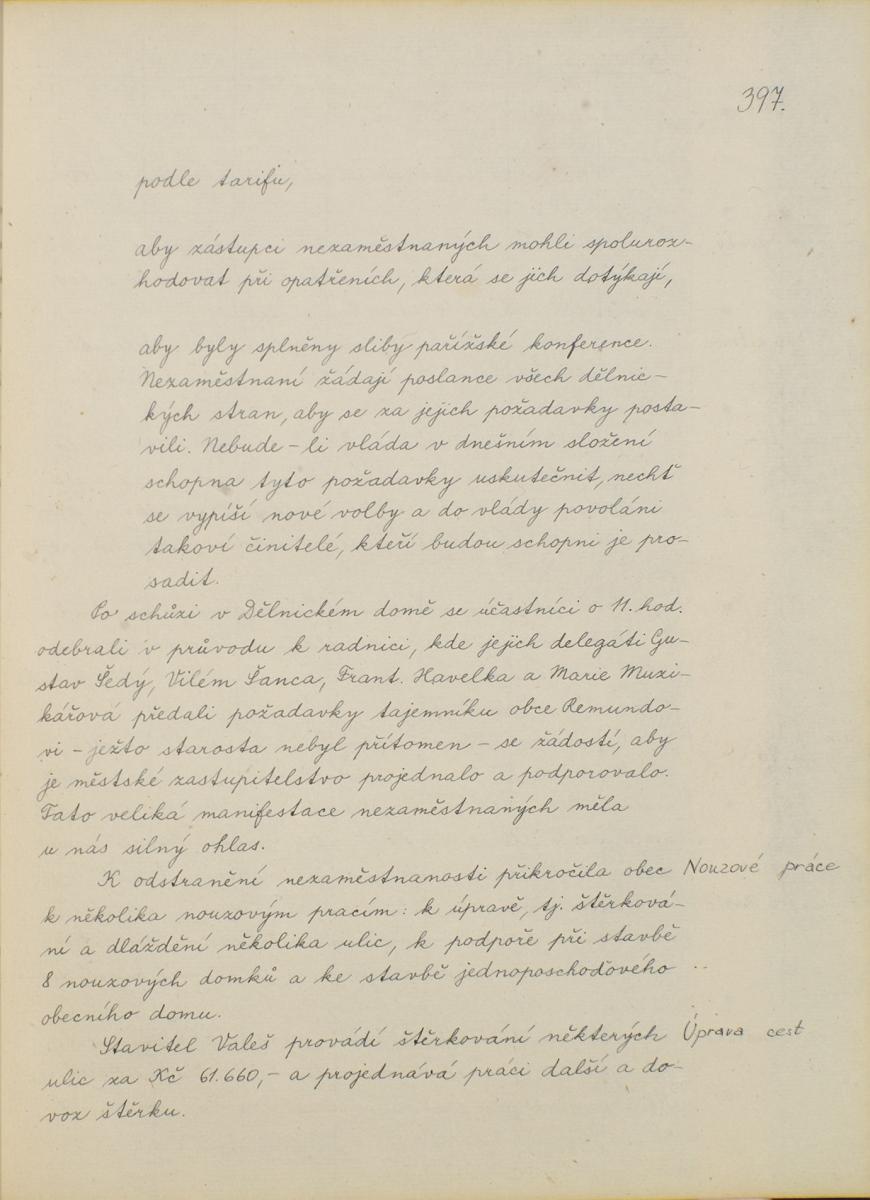 397.
podle tarifu,
aby zástupci nezaměstnaných mohli spoluroz-
hodovat při opatřeních, která se jich dotýkají,
aby byly splněny sliby pařížské konference.
Nezaměstnaní žádají poslance všech dělnic-
kých stran, aby se za jejich požadavky posta-
vili. Nebude-li vláda v dnešním složení
schopna tyto požadavky uskutečnit, nechť
se vypíší nové volby a do vlády povoláni
takoví činitelé, kteří budou schopni je pro-
sadit.
Po schůzi v Dělnickém domě se účastníci o 11. hod.
odebrali v průvodu k radnici, kde jejich delegáti Gu-
stav Šedý, Vilém Šanca, Frant. Havelka a Marie Muzi-
kářová předali požadavky tajemníku obce Remundo-
vi - ježto starosta nebyl přítomen - se žádostí, aby
je městské zastupitelstvo projednalo a podporovalo.
Tato veliká manifestace nezaměstnaných měla
u nás silný ohlas.
K odstranění nezaměstnanosti přikročila obec Nouzové práce
k několika nouzovým pracím: k úpravě, tj. štěrková-
ní a dláždění několika ulic, k podpoře při stavbě
8 nouzových domků a ke stavbě jednoposchoďového
obecního domu.
Stavitel Valeš provádí štěrkování některých Úprava cest
ulic za Kč 61.660,- a projednává práci další a do-
voz štěrku.